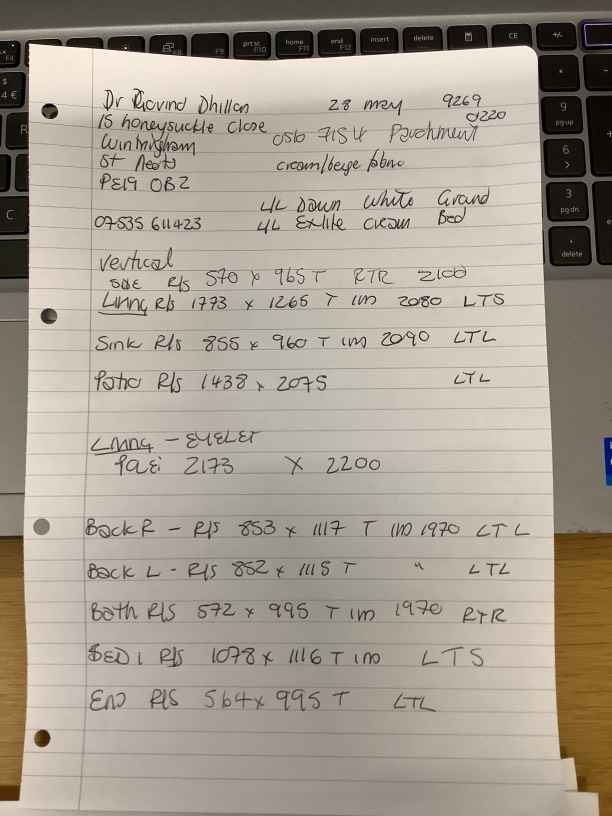 Dr Ravind Dhillon 28 may 9269
0220
15 honeysuckle close OSlo 7154 Parchment
Wintringham
St Neots cream/beige fabric
PE19 0BZ
4L Down White Grand
07535 611423 4L Exlite Cream Bed
Vertical
side R/S 570 x 965 T RTR 2100
Living R/S 1773 x 1265 T im 2080 LTS
Sink R/S 855 x 960 T im 2090 LTL
Patio R/S 1438 x 2075 LTL
Living - EYELET
Pole: 2173 X 2200
Back R - R/S 853 x 1117 T im 1970 LTL
Back L - R/S 852 x 1115 T " LTL
Bath R/S 572 x 995 T im 1970 RTR
BED 1 R/S 1078 x 1116 T im LTS
End R/S 564 x 995 T LTL